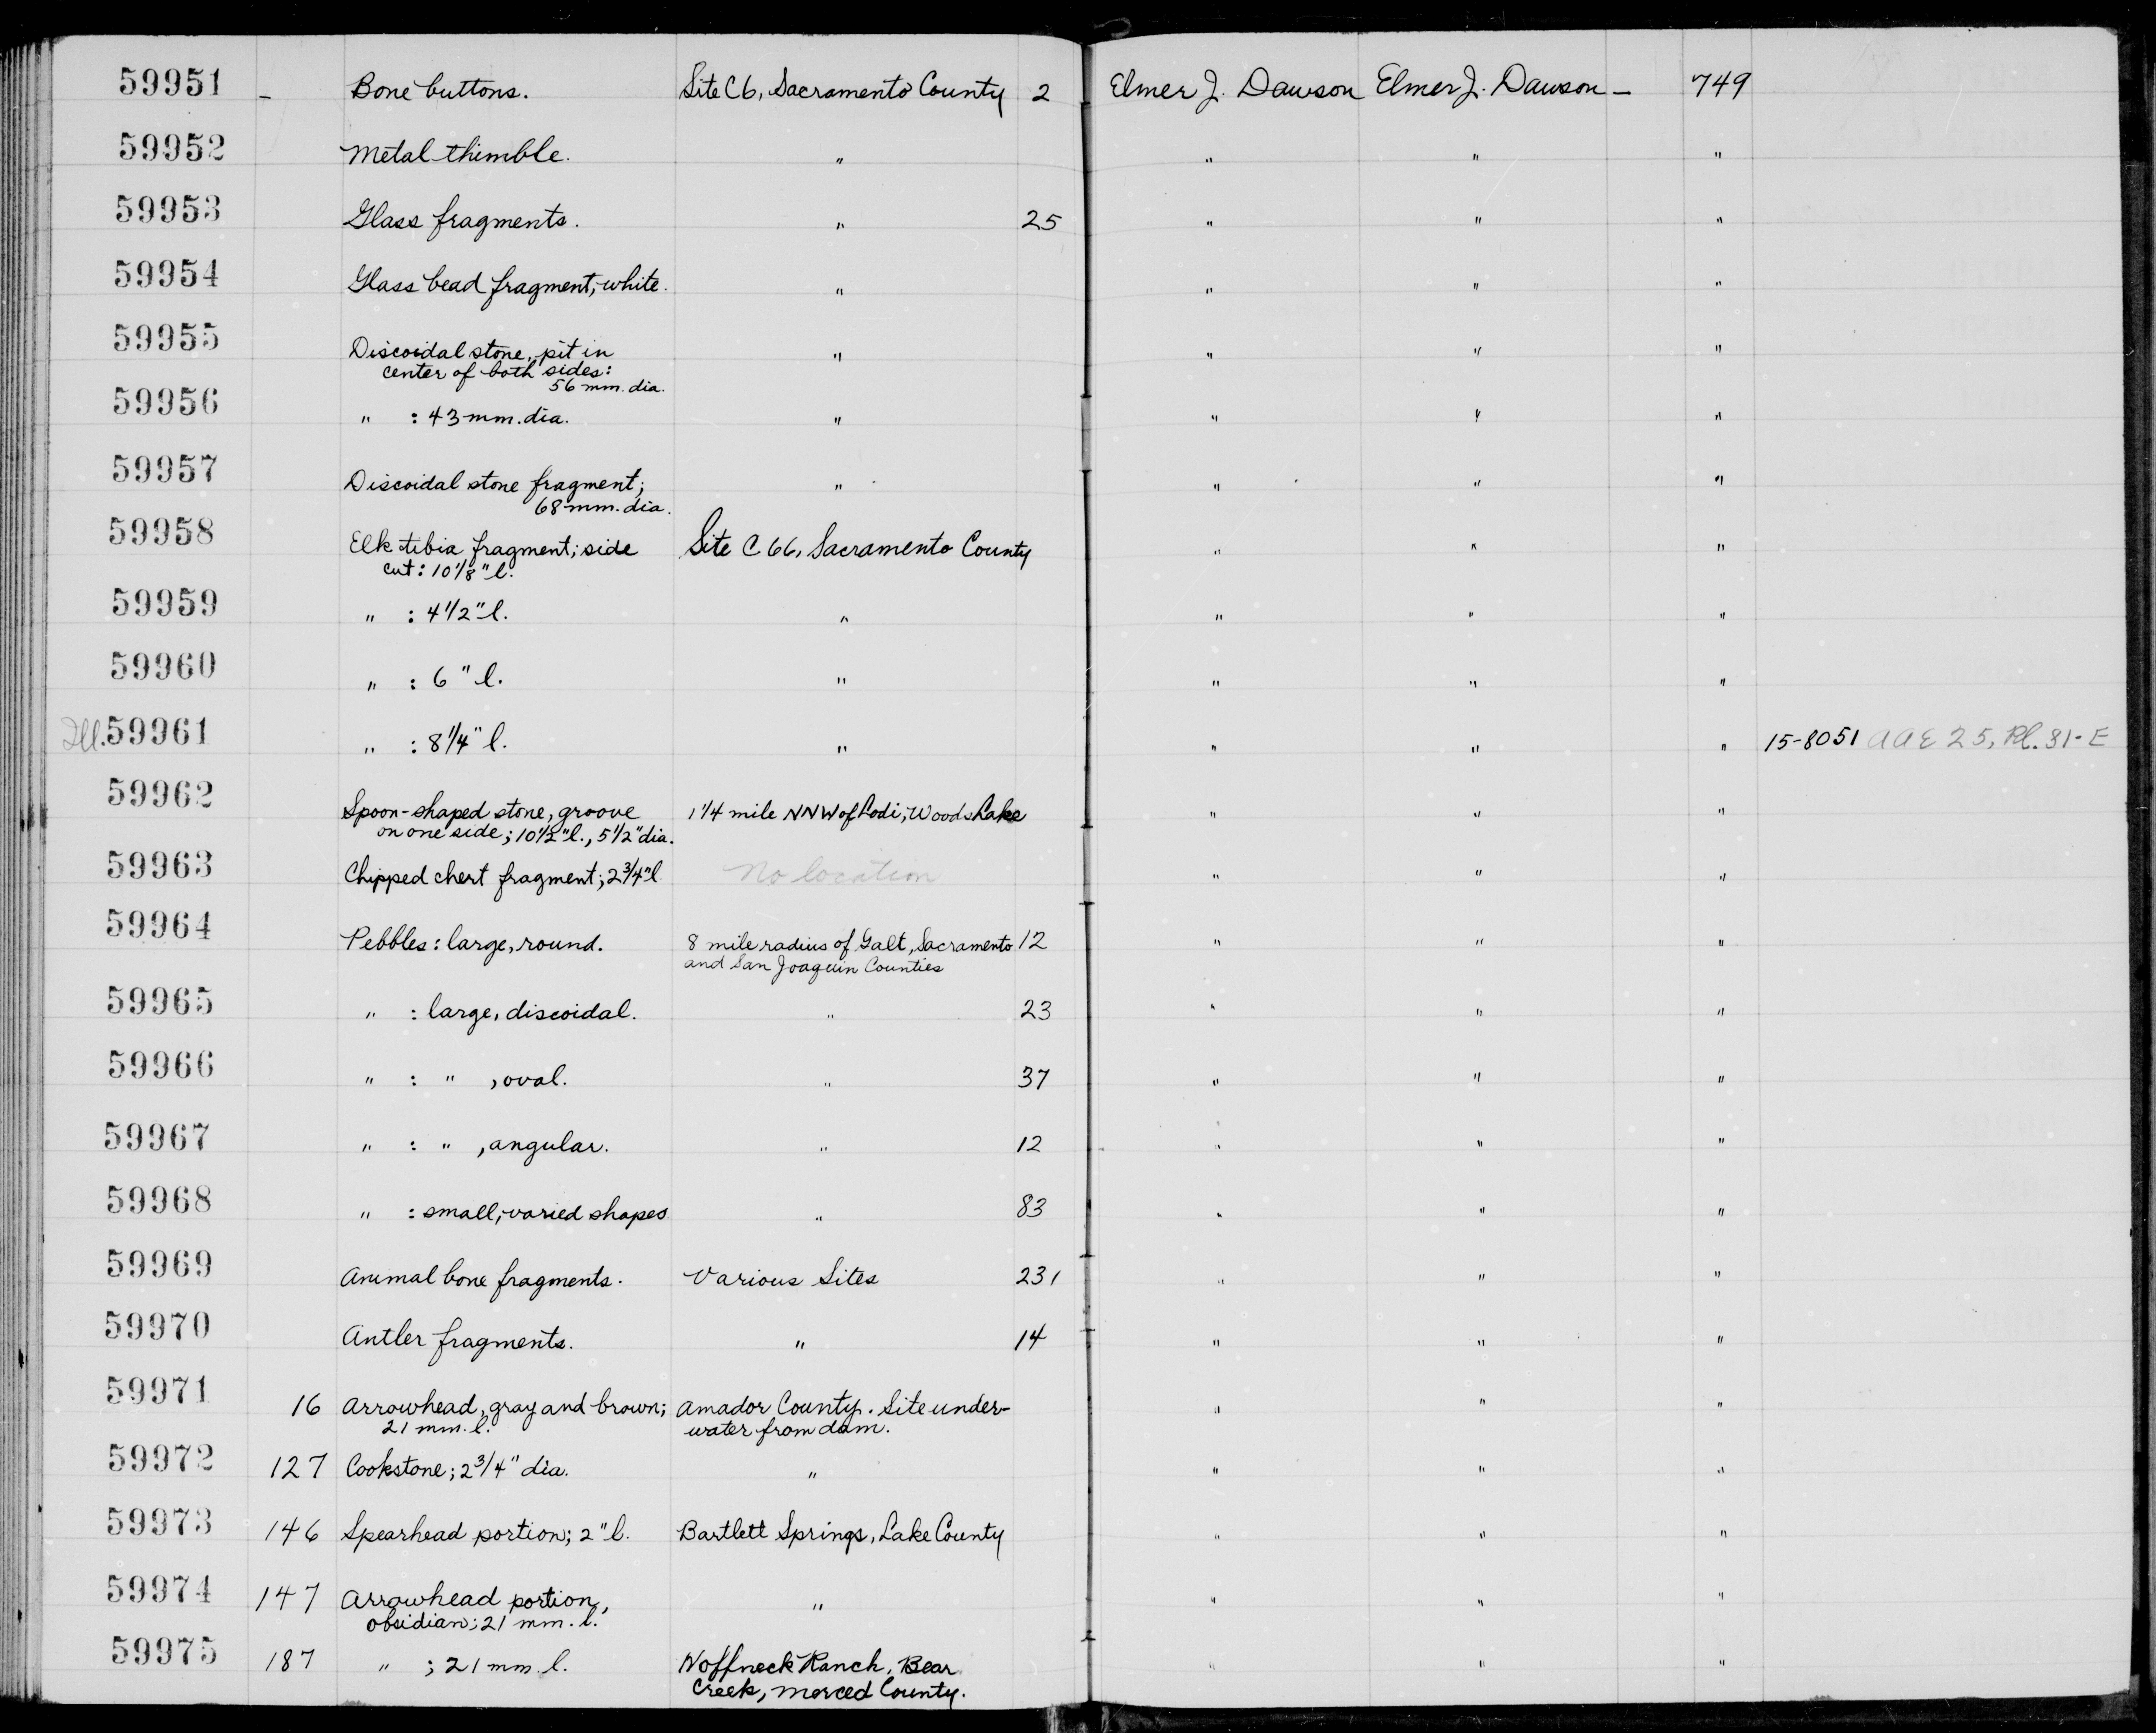 59951 – Bone buttons. Site C6, Sacramento County 2 Elmer J. Dawson Elmer J. Dawson – 749
59952 Metal thimble. " " " "
59953 Glass fragments. " 25 " " "
59954 Glass bead fragment, white. " " " "
59955 Discoidal stone, pit in " " " "
center of both sides:
56 mm. dia.
59956 " : 43 mm. dia. " " " "
59957 Discoidal stone fragment; " " " "
68 mm. dia.
59958 Elk tibia fragment; side Site C 66, Sacramento County " " "
cut: 10 1/8" l.
59959 " : 4 1/2" l. " " " "
59960 " : 6" l. " " " "
Ill. 59961 " : 8 1/4" l. " " " " 15-8051 AAE 25, Pl. 31-E
59962 Spoon-shaped stone, groove 1 1/4 mile NNW of Lodi, Woods Lake " " "
on one side; 10 1/2" l., 5 1/2" dia.
59963 Chipped chert fragment; 2 3/4" l No location " " "
59964 Pebbles: large, round. 8 mile radius of Galt, Sacramento 12 " " "
and San Joaquin Counties
59965 " : large, discoidal. " 23 " " "
59966 " : " , oval. " 37 " " "
59967 " : " , angular. " 12 " " "
59968 " : small, varied shapes " 83 " " "
59969 Animal bone fragments. Various Sites 231 " " "
59970 Antler fragments. " 14 " " "
59971 16 Arrowhead, gray and brown; Amador County. Site under- " " "
21 mm. l. water from dam.
59972 127 Cookstone; 2 3/4" dia. " " " "
59973 146 Spearhead portion; 2" l. Bartlett Springs, Lake County " " "
59974 147 Arrowhead portion, " " " "
obsidian; 21 mm. l.
59975 187 " ; 21 mm. l. Ranch, Bear " " "
Creek, Merced County.